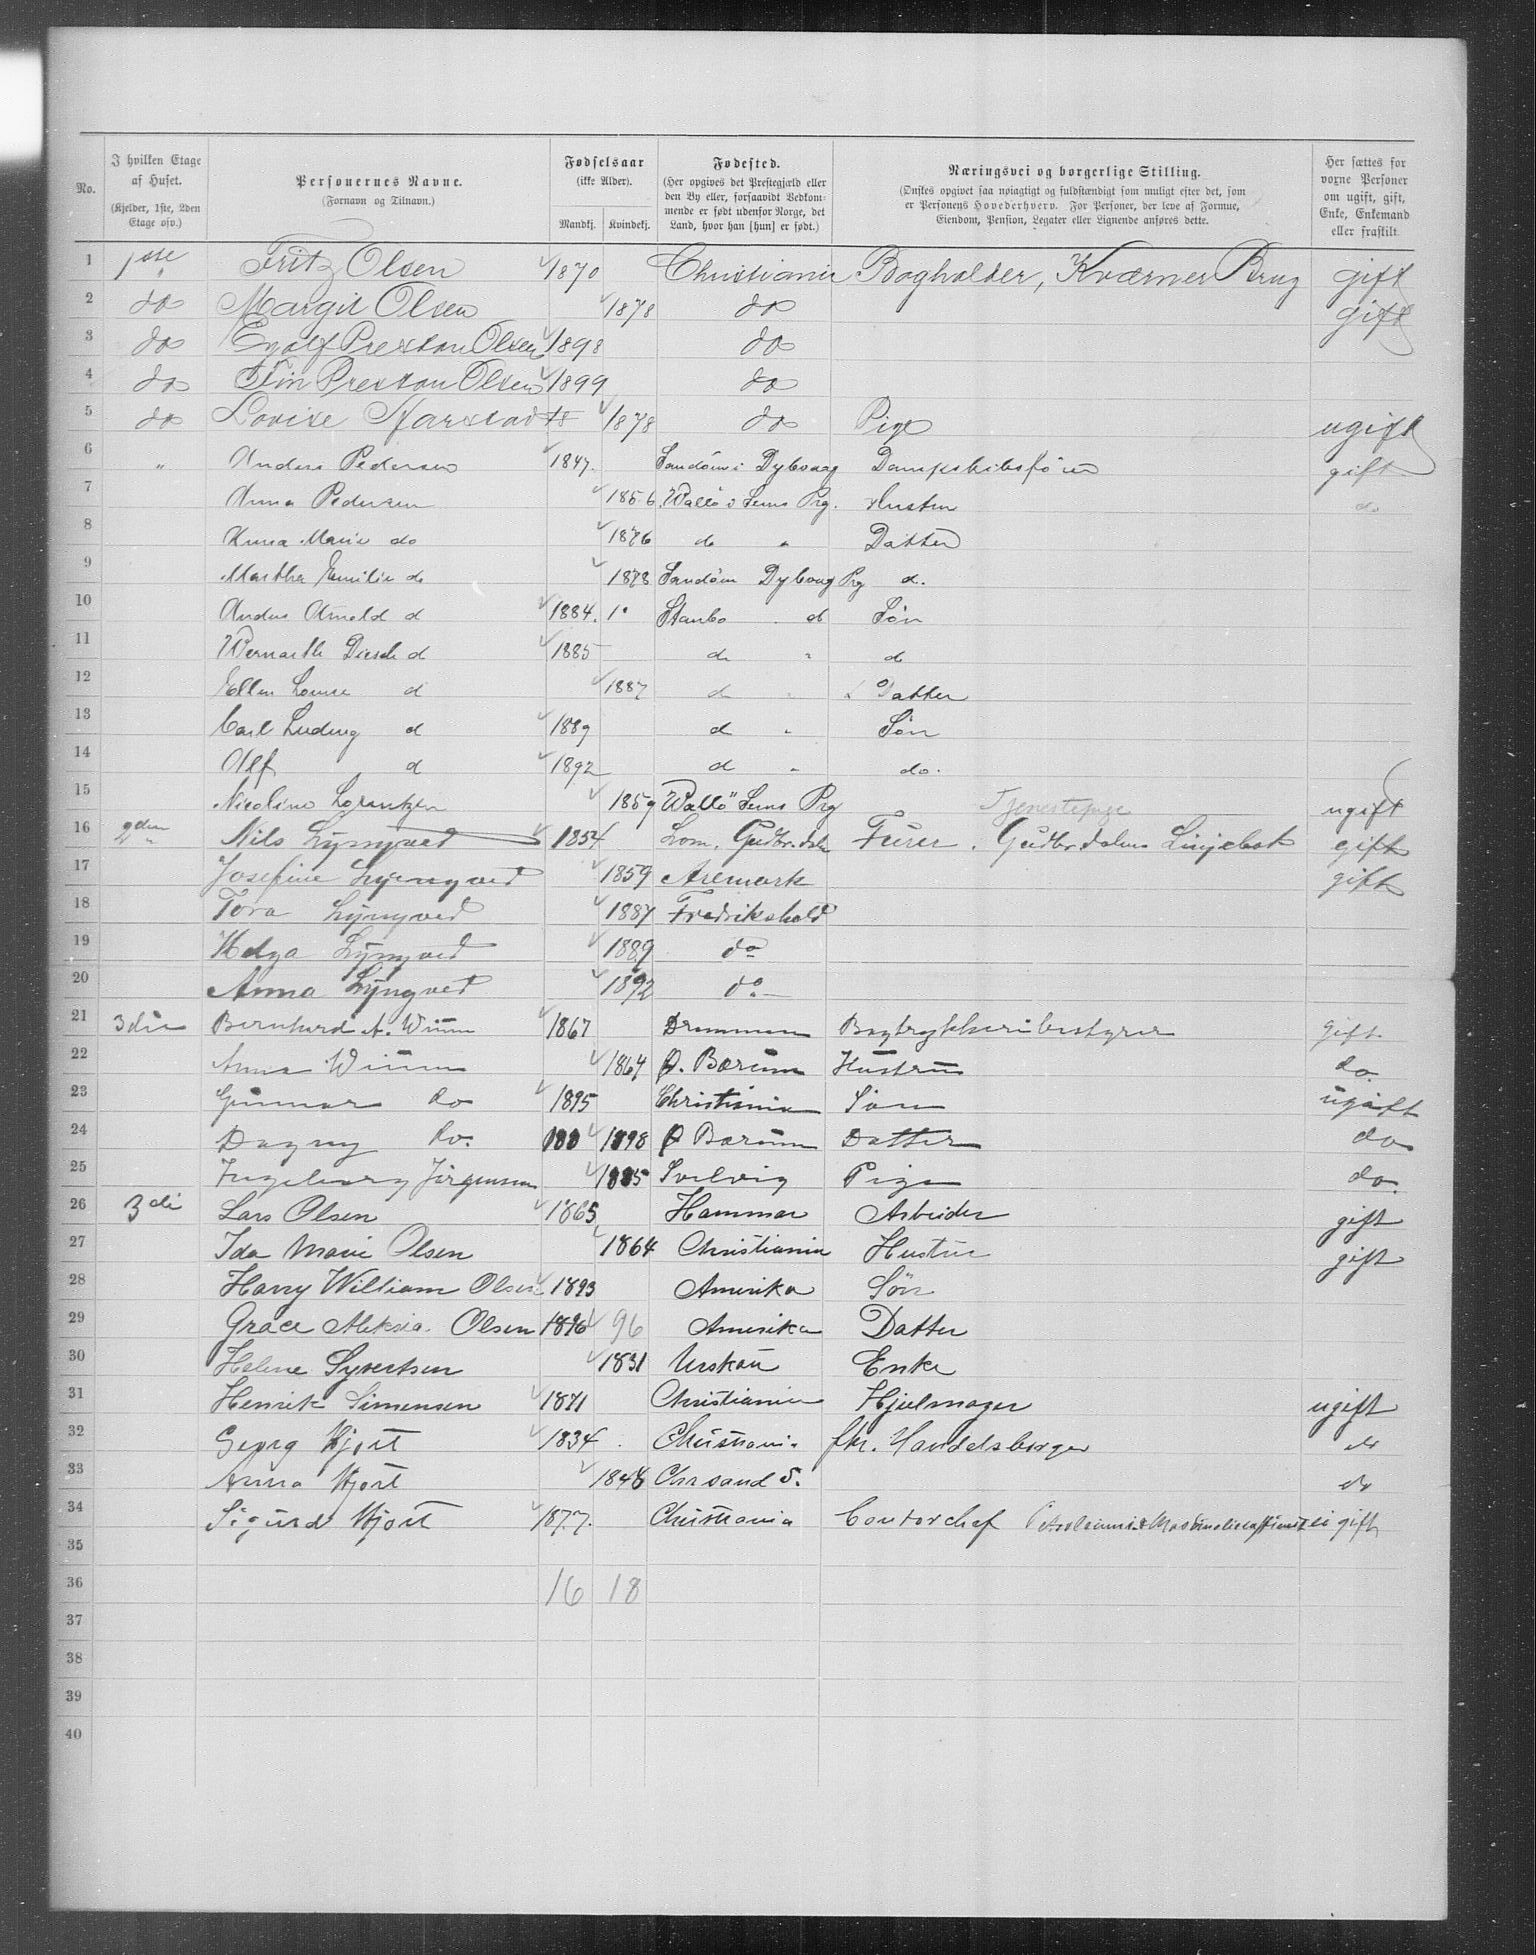 No. | I hvilken Etage af Huset. (Kjelder, 1ste, 2den Etage osv.) | Personernes Navne. (Fornavn og Tilnavn.) | Fødselsaar (ikke Alder). Mandkj. Kvindekj. | Fødested. (Her opgives det Prestegjæld eller den By eller, forsaavidt Vedkommende er født udenfor Norge, det Land, hvor han [hun] er født.) | Næringsvei og borgerlige Stilling. (Ønskes opgivet saa nøiagtigt og fuldstændigt som muligt efter det, som er Personens Hovederhverv. For Personer, der leve af Formue, Eiendom, Pension, Legater eller Lignende anføres dette. | Her sættes for voxne Personer om ugift, gift, Enke, Enkemand eller fraskilt.
1 1ste Fritz Olsen 1870 Christiania Bogholder, Kværner Brug gift
2 do Margit Olsen 1878 do gift
3 do Eyolf Preston Olsen 1898 do
4 do Finn Preston Olsen 1899 do
5 do Lovise 1878 do Pige ugift
6 " Anders Pedersen 1847. Sandøen i Dybvaag Dampskibsfører gift
7 Anna Pedersen 1856 Vallø i Sems Prg. Hustru do
8 Anna Marie do 1876 do " Datter
9 Martha Emilie do 1878 Sandøen Dybvaag Prg d.
10 Anders Arnold d 1884. 1" Stanbo d Søn
11 d 1885 do " do
12 Ellen Louise d 1887 d " Datter
13 Carl Ludvig d 1889 d " Søn
14 Alf d 1892 d " do.
15 Nicoline Lorentzen 1859 Vallø" Sems Prg Tjenestepige ugift
16 2den " Nils Lyngved 1854 Lom. Gudbr.dalen Furer. Gudbr.dalens gift
17 Josefine Lyngved 1859 Aremark gift
18 Tora Lyngved 1887 Fredrikshald
19 Helga Lyngved 1889 do
20 Anna Lyngved 1892 do
21 3die Bernhard A. Wium 1867 Drammen Bogtrykkeribestyrer gift
22 Anna Wium 1864 Ø. Bærum Hustru do.
23 Gunnar do 1895 Christiania Søn ugift
24 Dagny do. 188 1898 Ø Bærum Datter do
25 Ingeborg Jørgensen 1885 Svelvig Pige do.
26 3die Lars Olsen 1865 Hammar Arbeider gift
27 Ida Marie Olsen 1864 Christiania Hustru gift
28 Harry William Olsen 1893 Amerika Søn
29 Grace Aleksia. Olsen 1896 96 Amerika Datter
30 Helene Syvertsen 1831 Urskou Enke
31 Henrik Simensen 1871 Christiania Hjulmager ugift
32 Georg Hjort 1834 Christiania fhr. Handelsborger do
33 Anna Hjort 1848 Chrsand S. do
34 Sigurd Hjort 1877. Christiania Contorchef ugift
35
36 16 18
37
38
39
40